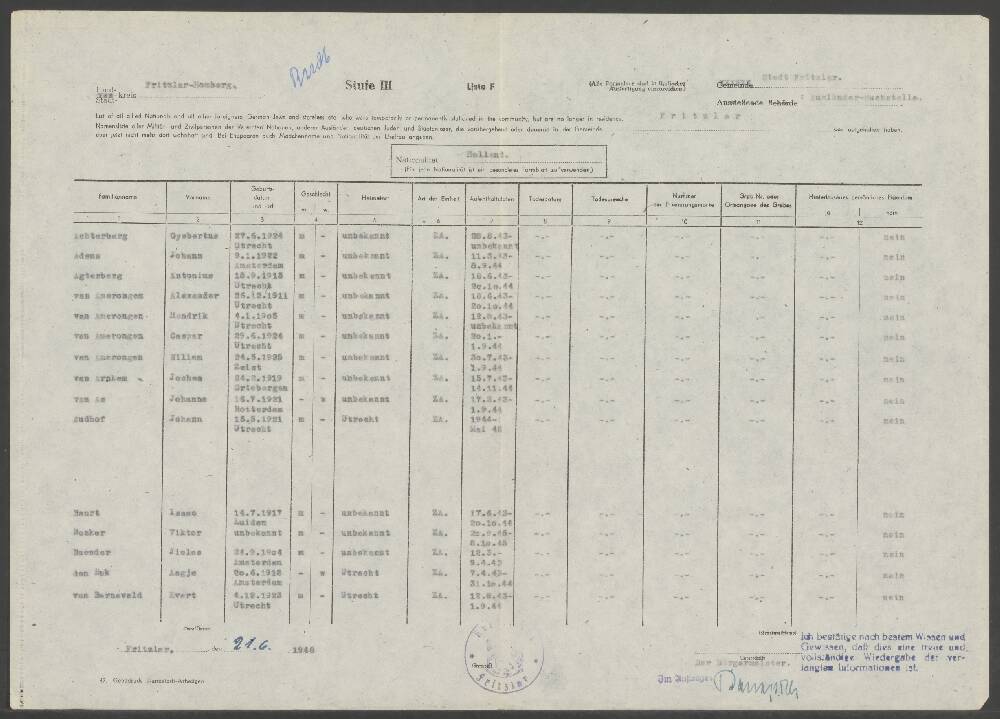 Fritzlar-Homberg.
Land-
Stadt- kreis
Stufe III
Liste F
Gemeinde Stadt Fritzlar.
Ausstellende Behörde: Ausländer-Suchstelle.
Fritzlar
List of all allied Nationals and all other foreigners German Jews and stateless etc. who were temporarily or permanently stationed in the community, but are no longer in residence.
Namensliste aller Militär- und Zivilpersonen der Vereinten Nationen, anderer Ausländer, deutschen Juden und Staatenlosen, die vorübergehend oder dauernd in der Gemeinde
aber jetzt nicht mehr dort wohnhaft sind. Bei Ehepaaren auch Mädchenname und Nationalität der Ehefrau angeben.
Nationalität Holland.
(Für jede Nationalität ist ein besonderes Formblatt zu verwenden)
Familienname Vorname Geburts-datum und -ort Geschlecht m. w. Heimatort Art der Einheit Aufenthaltsdaten Todesdatum Todesursache Nummer Grab Nr. oder Ortsangabe des Grabes Hinterlassenes persönliches Eigentum ja nein
1 2 3 4 5 6 7 8 9 10 11 12
Achterberg Gysbertus 27.6.1924 m - unbekannt ZA. 28.8.43- -.- -.- -.- -.- -.- nein
Utrecht unbekannt
Adens Johann 9.1.1922 m - unbekannt ZA. 11.3.43- -.- -.- -.- -.- -.- nein
Amsterdam 8.9.44
Agterberg Antonius 18.9.1918 m - unbekannt ZA. 18.6.43- -.- -.- -.- -.- -.- nein
Utrecht 20.10.44
van Amerongen Alexander 26.12.1911 m - unbekannt ZA. 18.6.43- -.- -.- -.- -.- -.- nein
Utrecht 20.10.44
van Amerongen Hendrik 4.1.1905 m - unbekannt ZA. 12.8.43- -.- -.- -.- -.- -.- nein
Utrecht unbekannt
van Amerongen Caspar 29.6.1924 m - unbekannt ZA. 20.1.- -.- -.- -.- -.- -.- nein
Utrecht 1.9.44
van Amerongen Willem 24.5.1925 m - unbekannt ZA. 30.7.43- -.- -.- -.- -.- -.- nein
Zeist 1.9.44
van Arnhem Jochem 24.2.1919 m - unbekannt ZA. 15.7.43- -.- -.- -.- -.- -.- nein
Driebergen 14.11.44
van As Johanna 16.7.1921 - w unbekannt ZA. 17.2.43- -.- -.- -.- -.- -.- nein
Rotterdam 1.9.44
Audhof Johann 15.5.1921 m - Utrecht ZA. 1944- -.- -.- -.- -.- -.- nein
Utrecht Mai 45
Baart 14.7.1917 m - unbekannt ZA. 17.6.43- -.- -.- -.- -.- -.- nein
Leiden 20.10.44
Viktor unbekannt m - unbekannt ZA. -.- -.- -.- -.- -.- nein
8.10.45
Baender 24.9.1904 m - unbekannt ZA. 12.3.- -.- -.- -.- -.- -.- nein
Amsterdam 9.4.43
den Aagje 20.6.1918 - w Utrecht ZA. 7.4.43- -.- -.- -.- -.- -.- nein
Amsterdam 31.10.44
van Barneveld Evert 4.12.1923 m - Utrecht ZA. 12.8.43- -.- -.- -.- -.- -.- nein
Utrecht 1.9.44
Fritzlar, den 21.6. 1948
Fritzlar
Der Bürgermeister.
Im Auftrage:
Ich bestätige nach bestem Wissen und
Gewissen, daß dies eine treue und
vollständige Wiedergabe der ver-
langten Informationen ist.